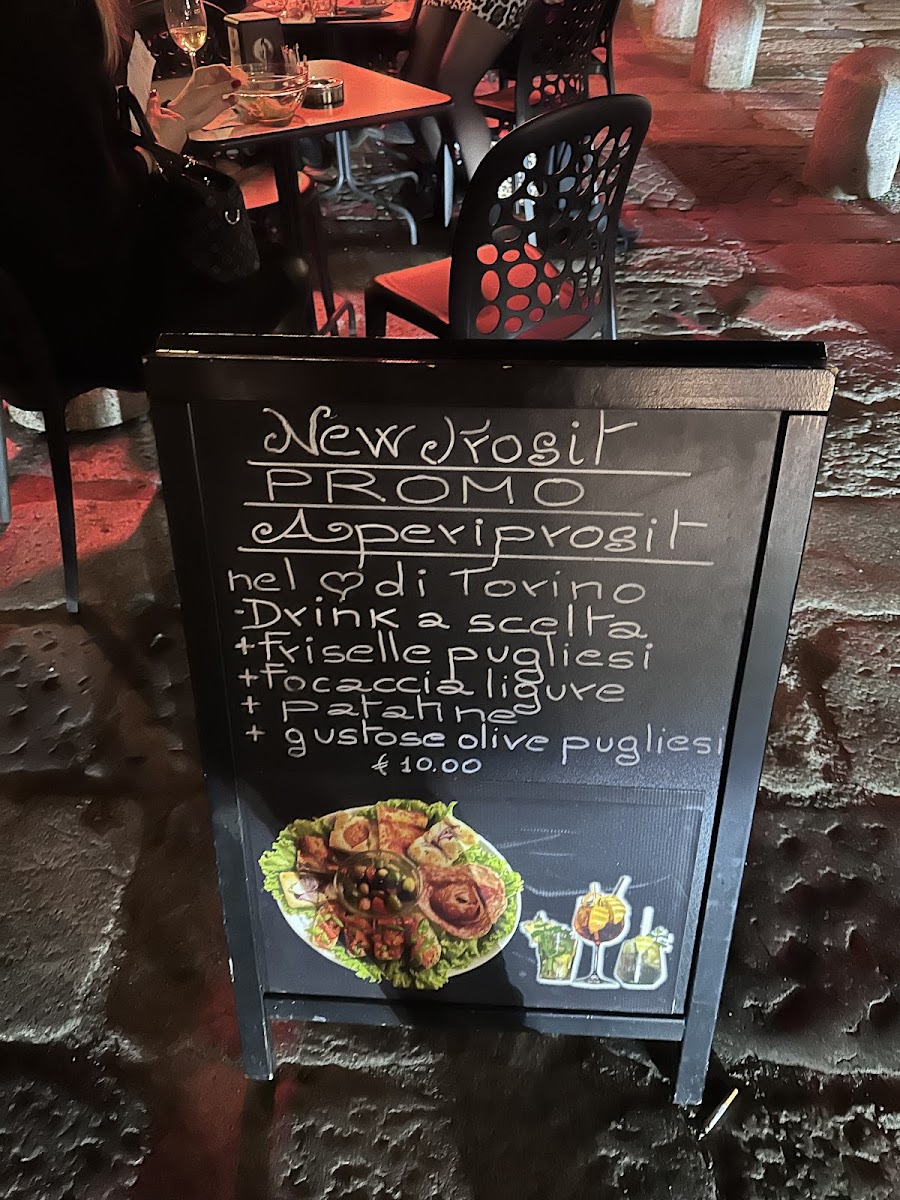 New Prosit
PROMO
Aperiprosit
nel ♡ di Torino
-Drink a scelta
+friselle pugliesi
+Focaccia ligure
+ patatine
+ gustose olive pugliesi
€ 10.00